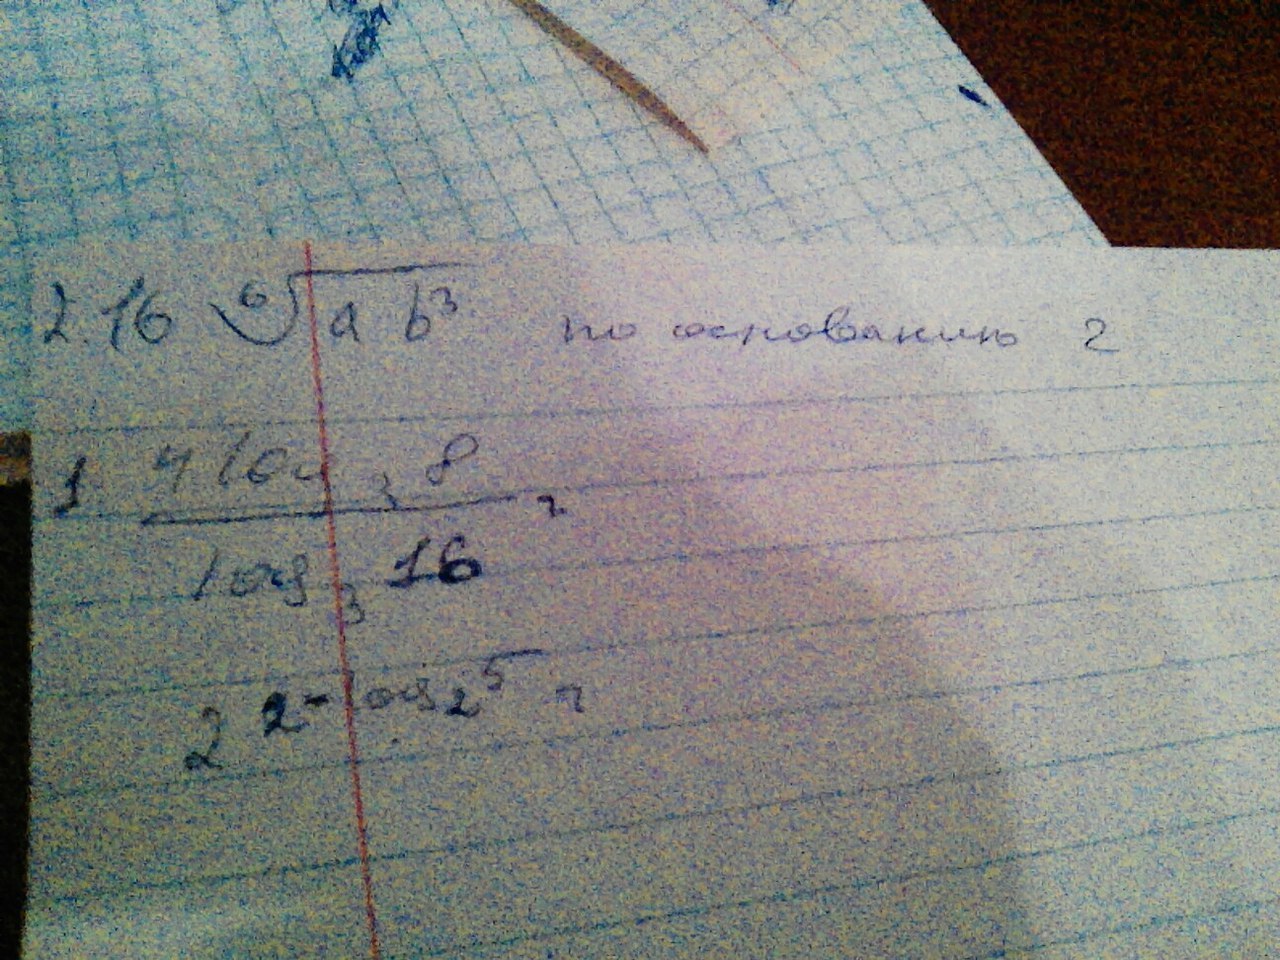 2. 16 ⁶√a b³ по основанию 2
1 4 log₃ 8 / log₃ 16 =
2^(2-log₂5) =